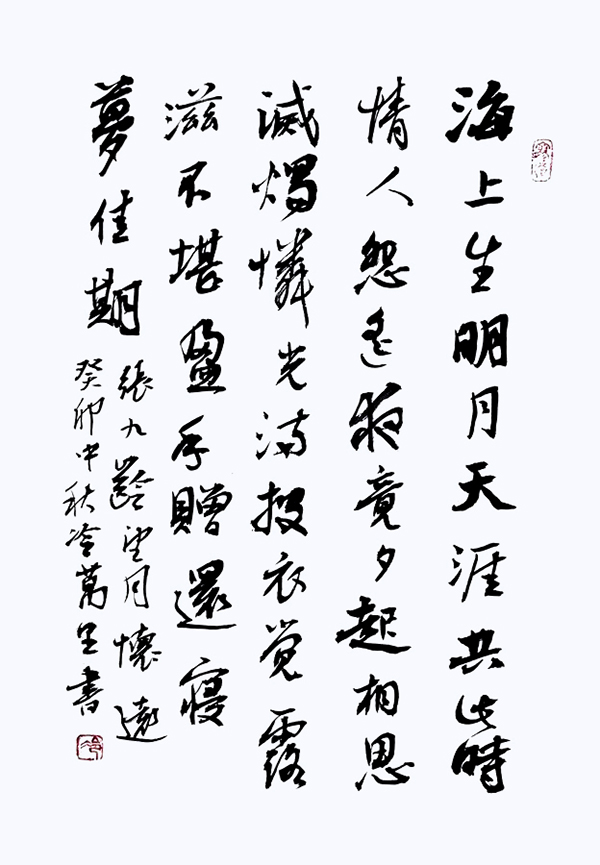 海上生明月天涯共此時
情人怨遙夜竟夕起相思
滅燭憐光滿披衣覺露
滋不堪盈手贈還寢
夢佳期
張九齡望月懷遠
癸卯中秋冷萬里書